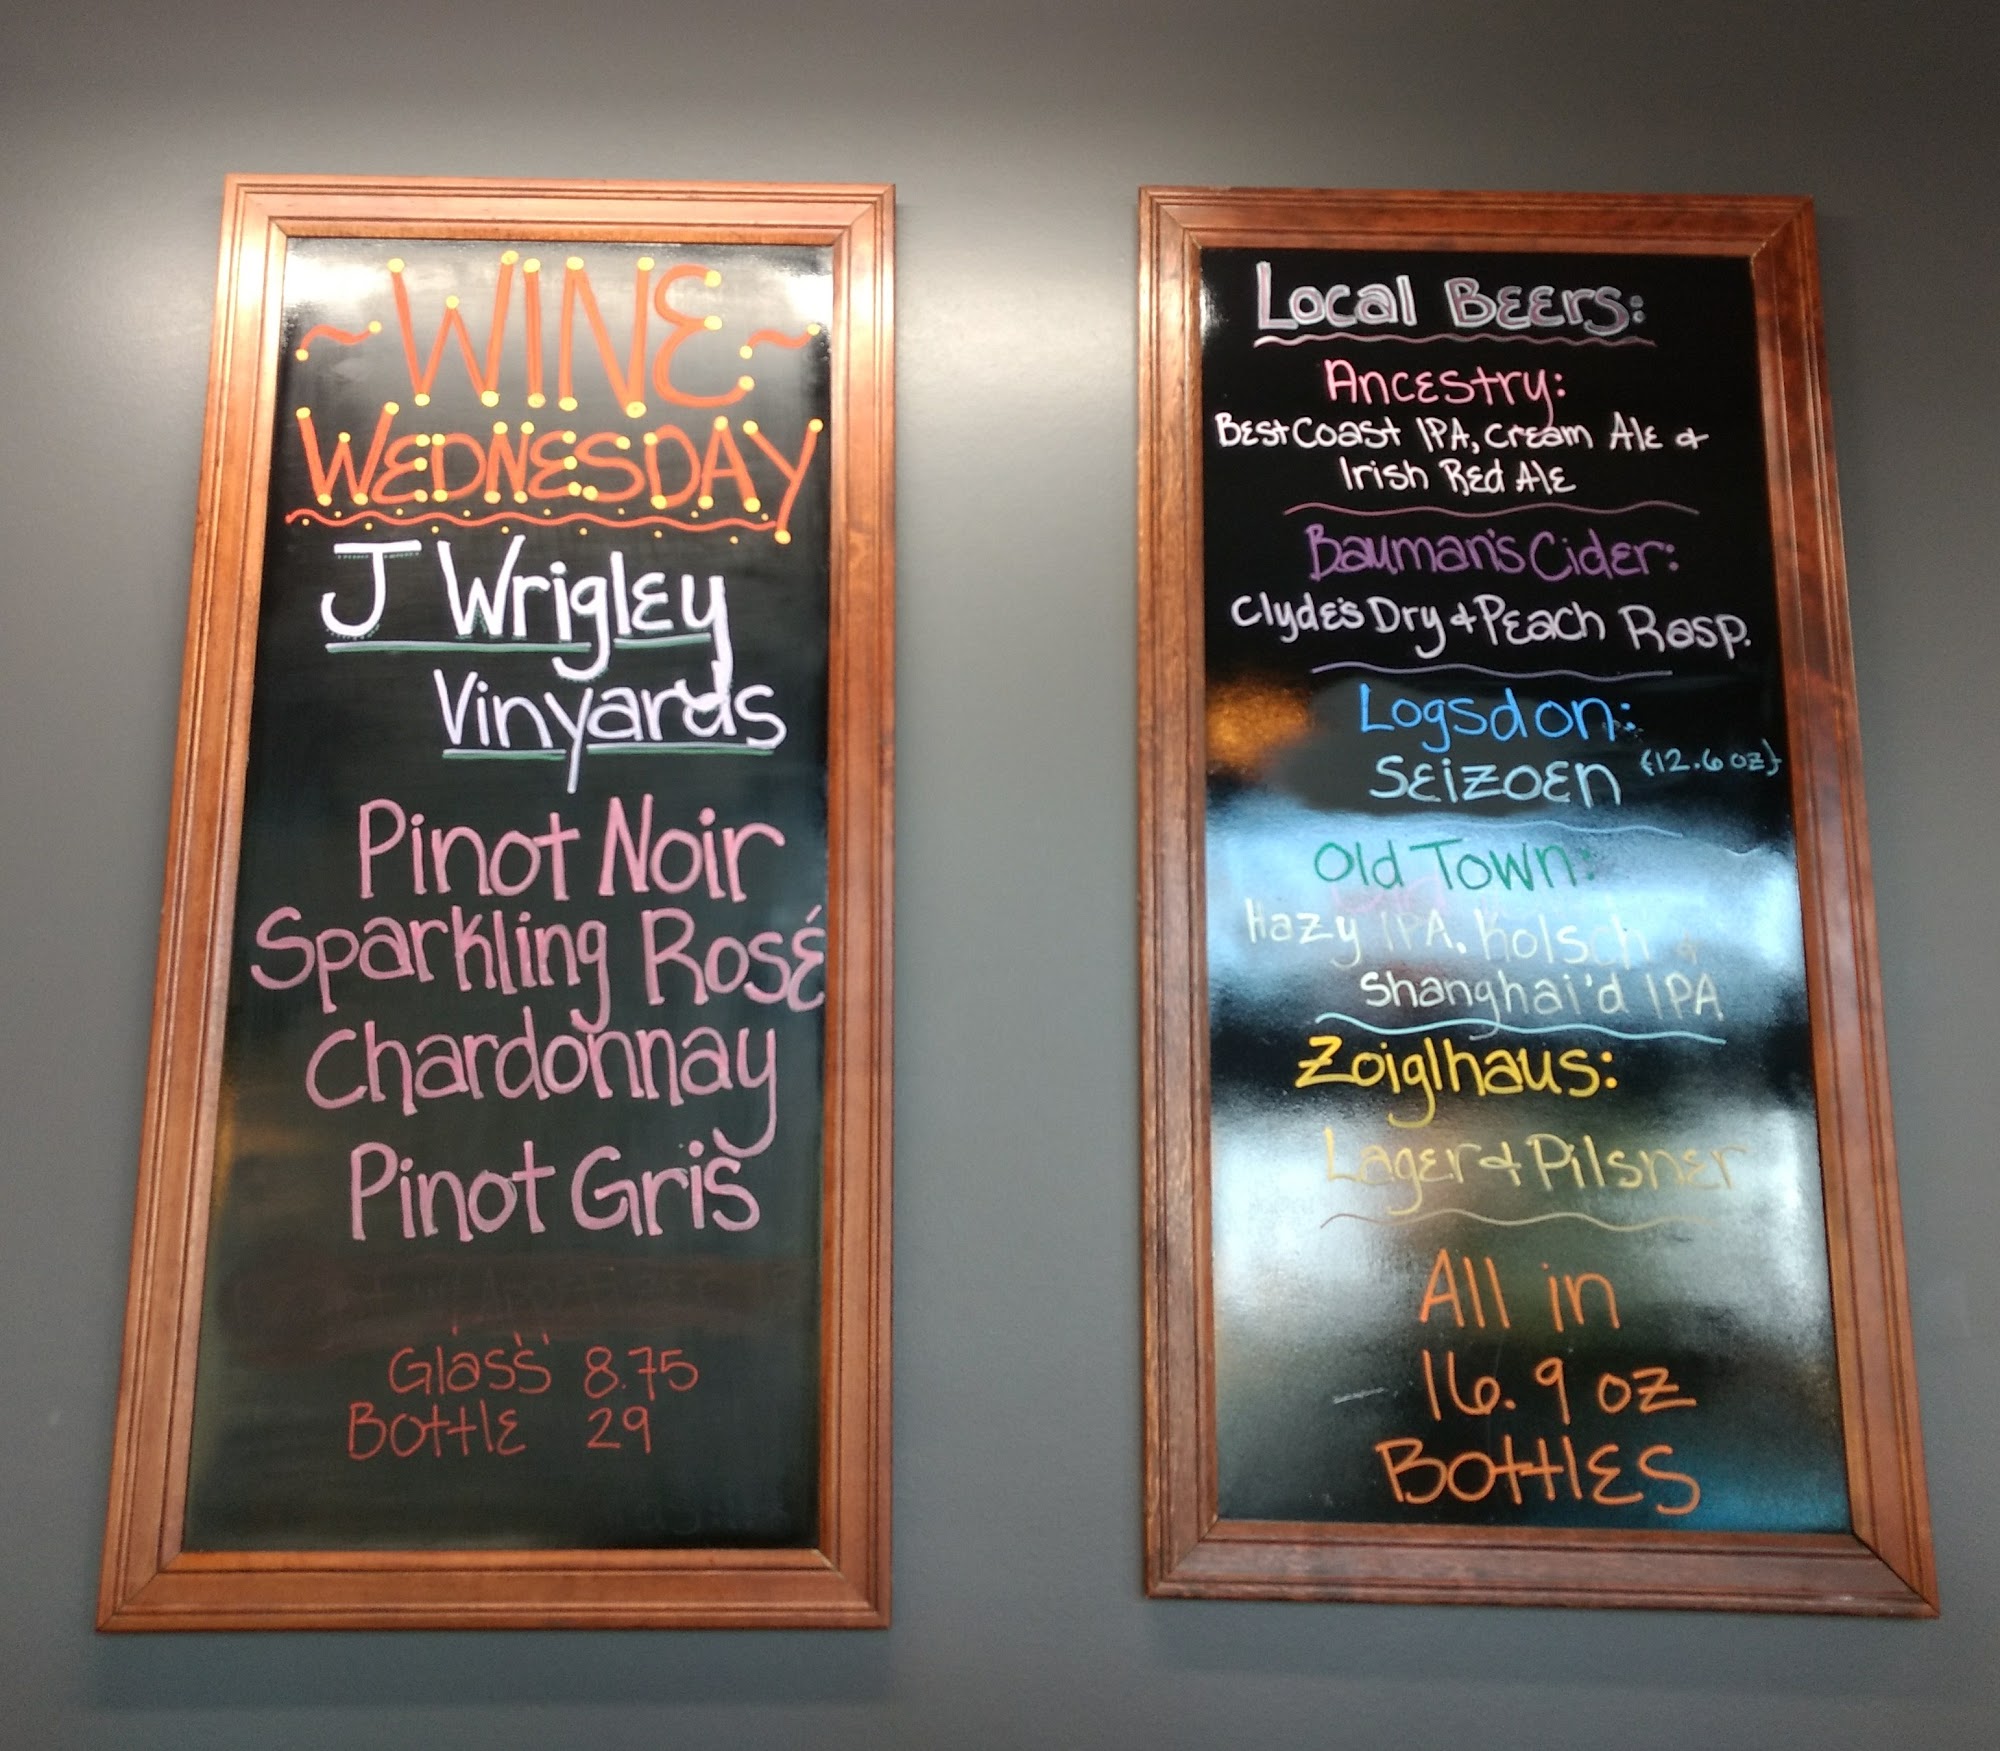 ~ WINE ~
WEDNESDAY
J Wrigley
Vinyards
Pinot Noir
Sparkling Rosé
Chardonnay
Pinot Gris
Glass 8.75
Bottle 29
Local Beers:
Ancestry:
Best Coast IPA, Cream Ale &
Irish Red Ale
Bauman's Cider:
Clyde's Dry & Peach Rasp.
Logsdon:
Seizoen {12.6 oz}
Old Town:
Hazy IPA, Kolsch &
Shanghai'd IPA
Zoiglhaus:
Lager & Pilsner
All in
16.9 oz
Bottles